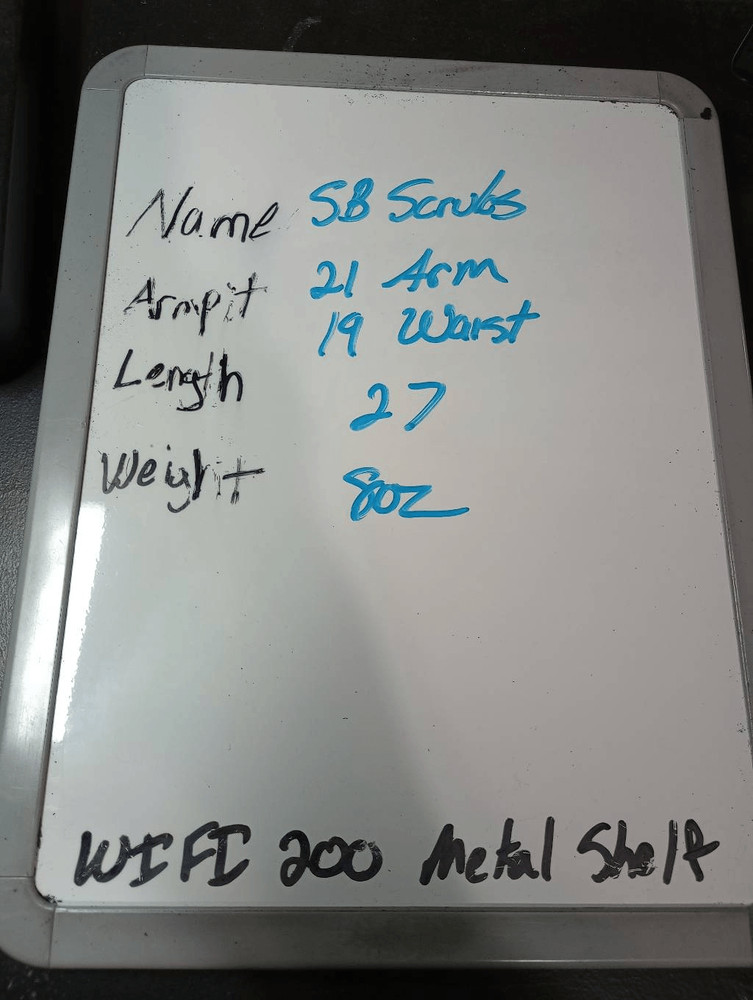 Name SB Scrubs
Armpit 21 Arm
19 Waist
Length 27
Weight 8oz
WIFI 200 Metal Shelf